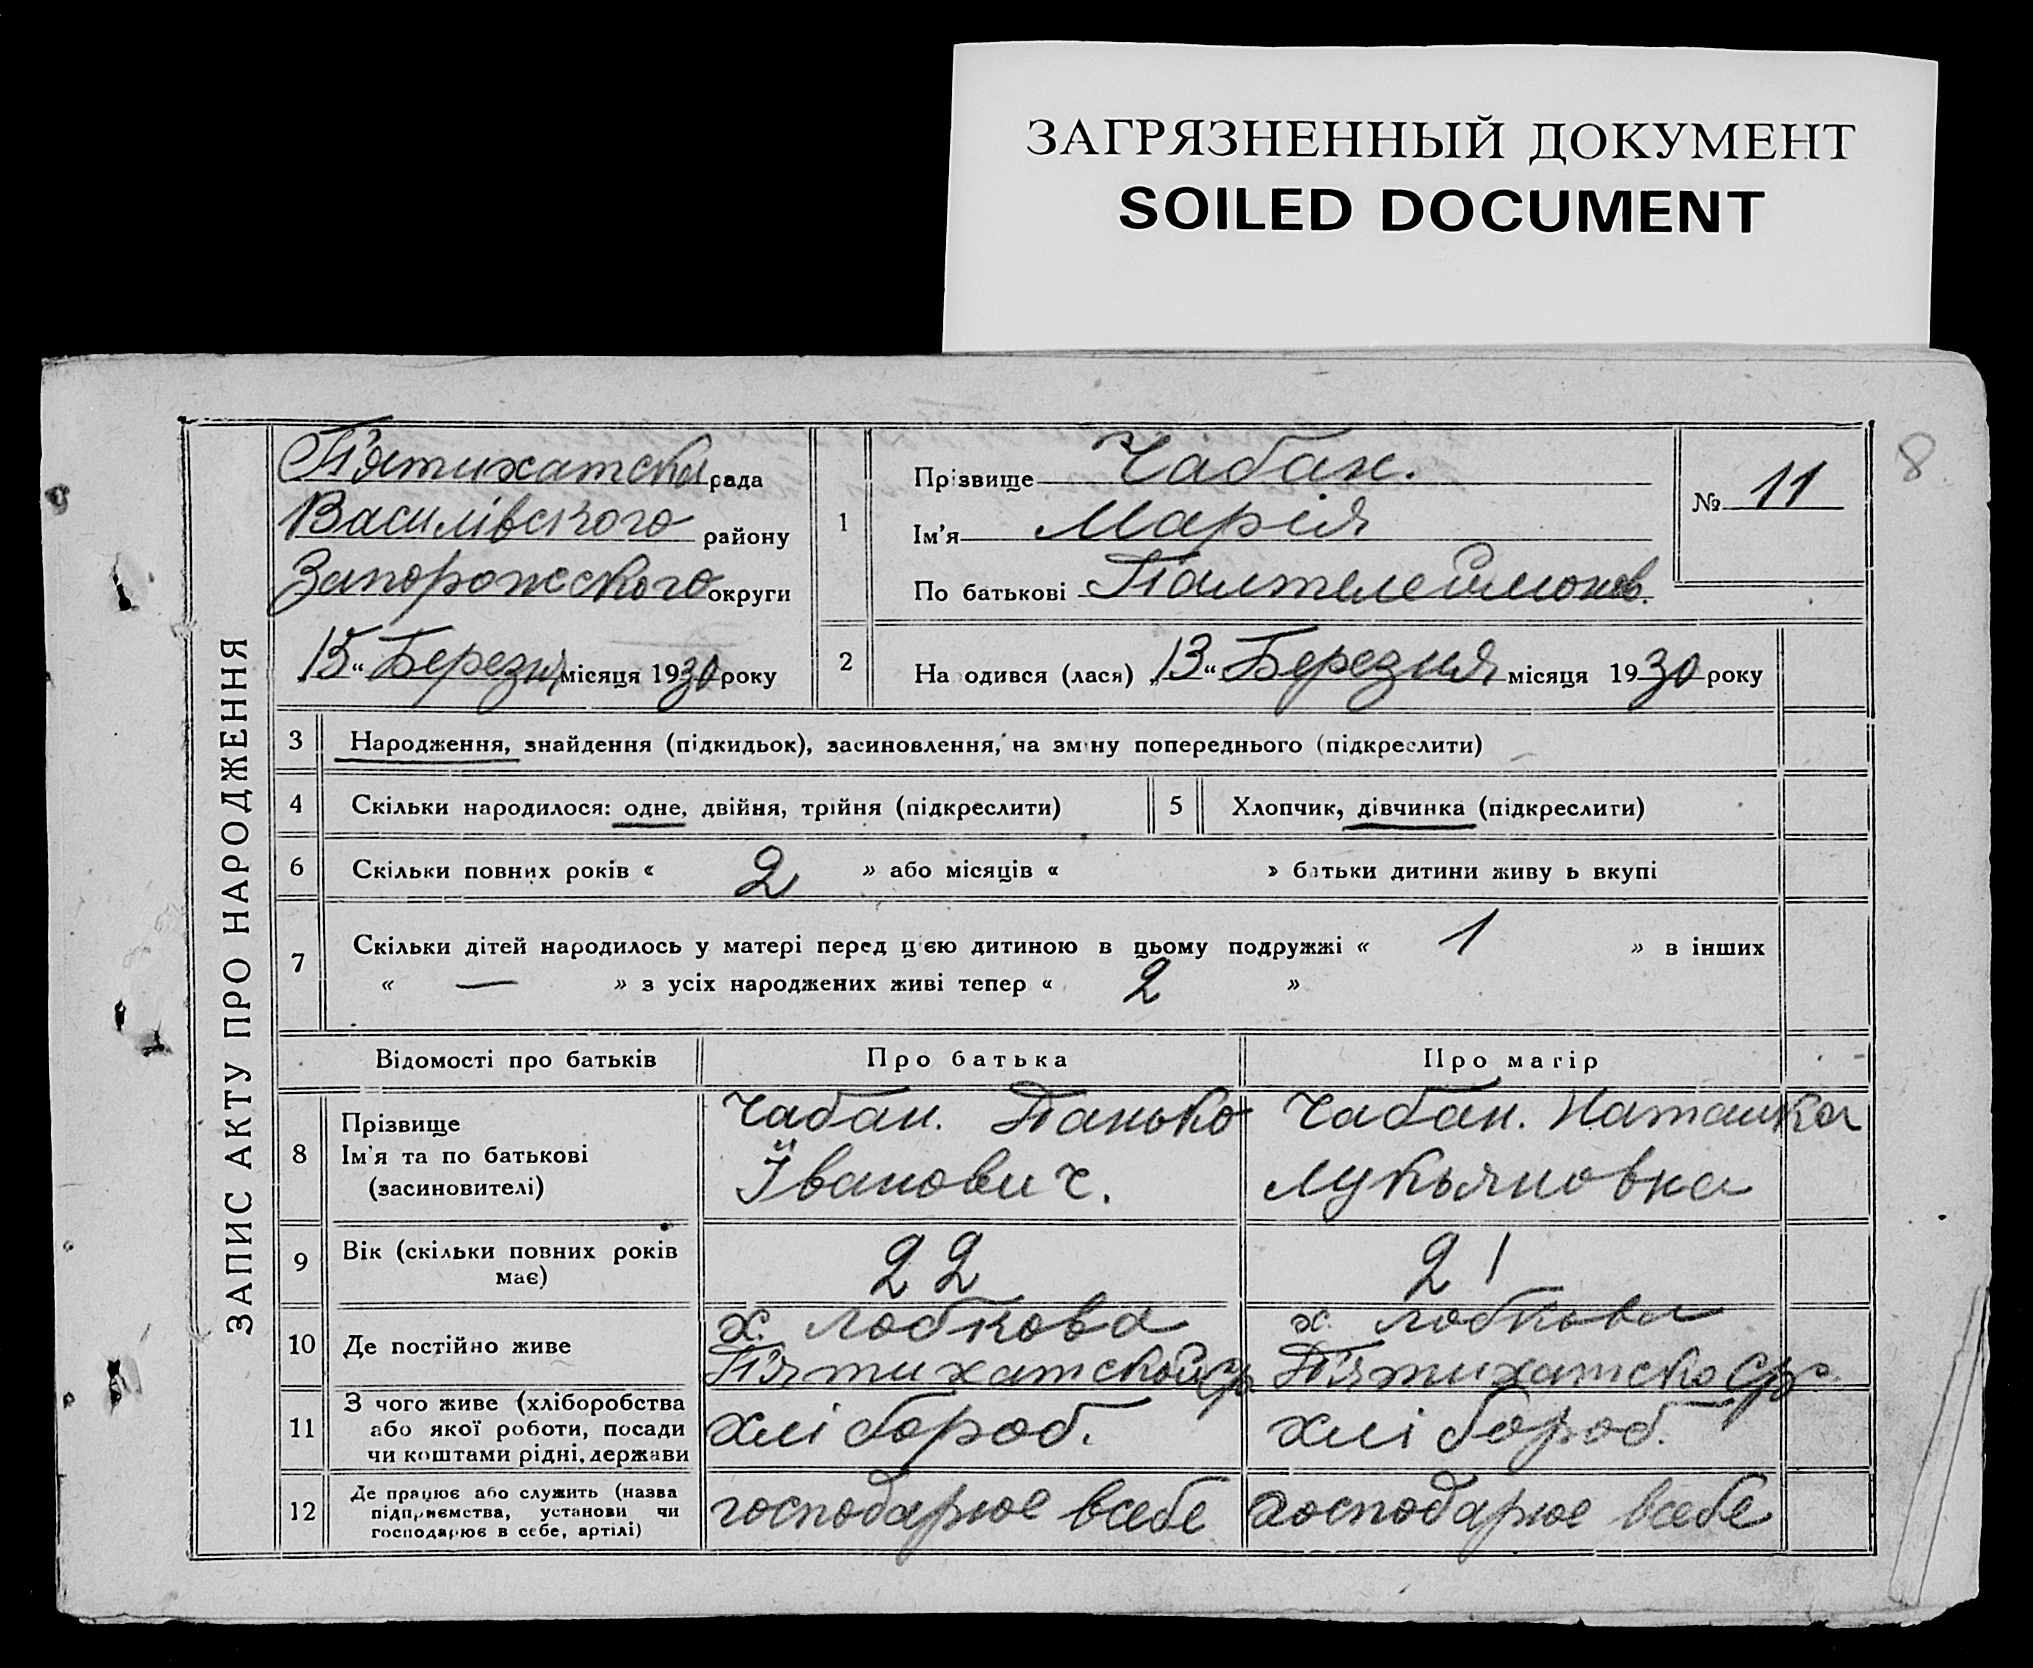 ЗАГРЯЗНЕННЫЙ ДОКУМЕНТ
SOILED DOCUMENT
8
ЗАПИС АКТУ ПРО НАРОДЖЕННЯ
Пʼятихатська рада
Василівского району
Запорожского округи
15 „ Березня місяця 1930 року
1
Прізвище Чабан.
Ім'я Марія
По батькові Пантелеймонов.
№ 11
2
На одився (лася) „13“ Березня місяця 1930 року
3 Народження, знайдення (підкидьок), засиновлення, на зміну попереднього (підкреслити)
4 Скільки народилося: одне, двійня, трійня (підкреслити) 5 Хлопчик, дівчинка (підкреслити)
6 Скільки повних років « 2 » або місяців « » батьки дитини живу ь вкупі
7 Скільки дітей народилось у матері перед цією дитиною в цьому подружжі « 1 » в інших
« — » з усіх народжених живі тепер « 2 »
Відомості про батьків Про батька Про матір
8 Прізвище
Ім'я та по батькові
(засиновителі)
Чабан. Панько
Іванович.
Чабан. Наталка
Лукьяновна
9 Вік (скільки повних років
має)
22
21
10 Де постійно живе
х. Лобкова
Пʼятихатской ср
х. Лобкова
Пʼятихатско ср
11 З чого живе (хліборобства
або якої роботи, посади
чи коштами рідні, держави
хлібороб.
хлібороб.
12 Де працює або служить (назва
підприємства, установи чи
господарює в себе, артілі)
господарює всебе
господарює всебе